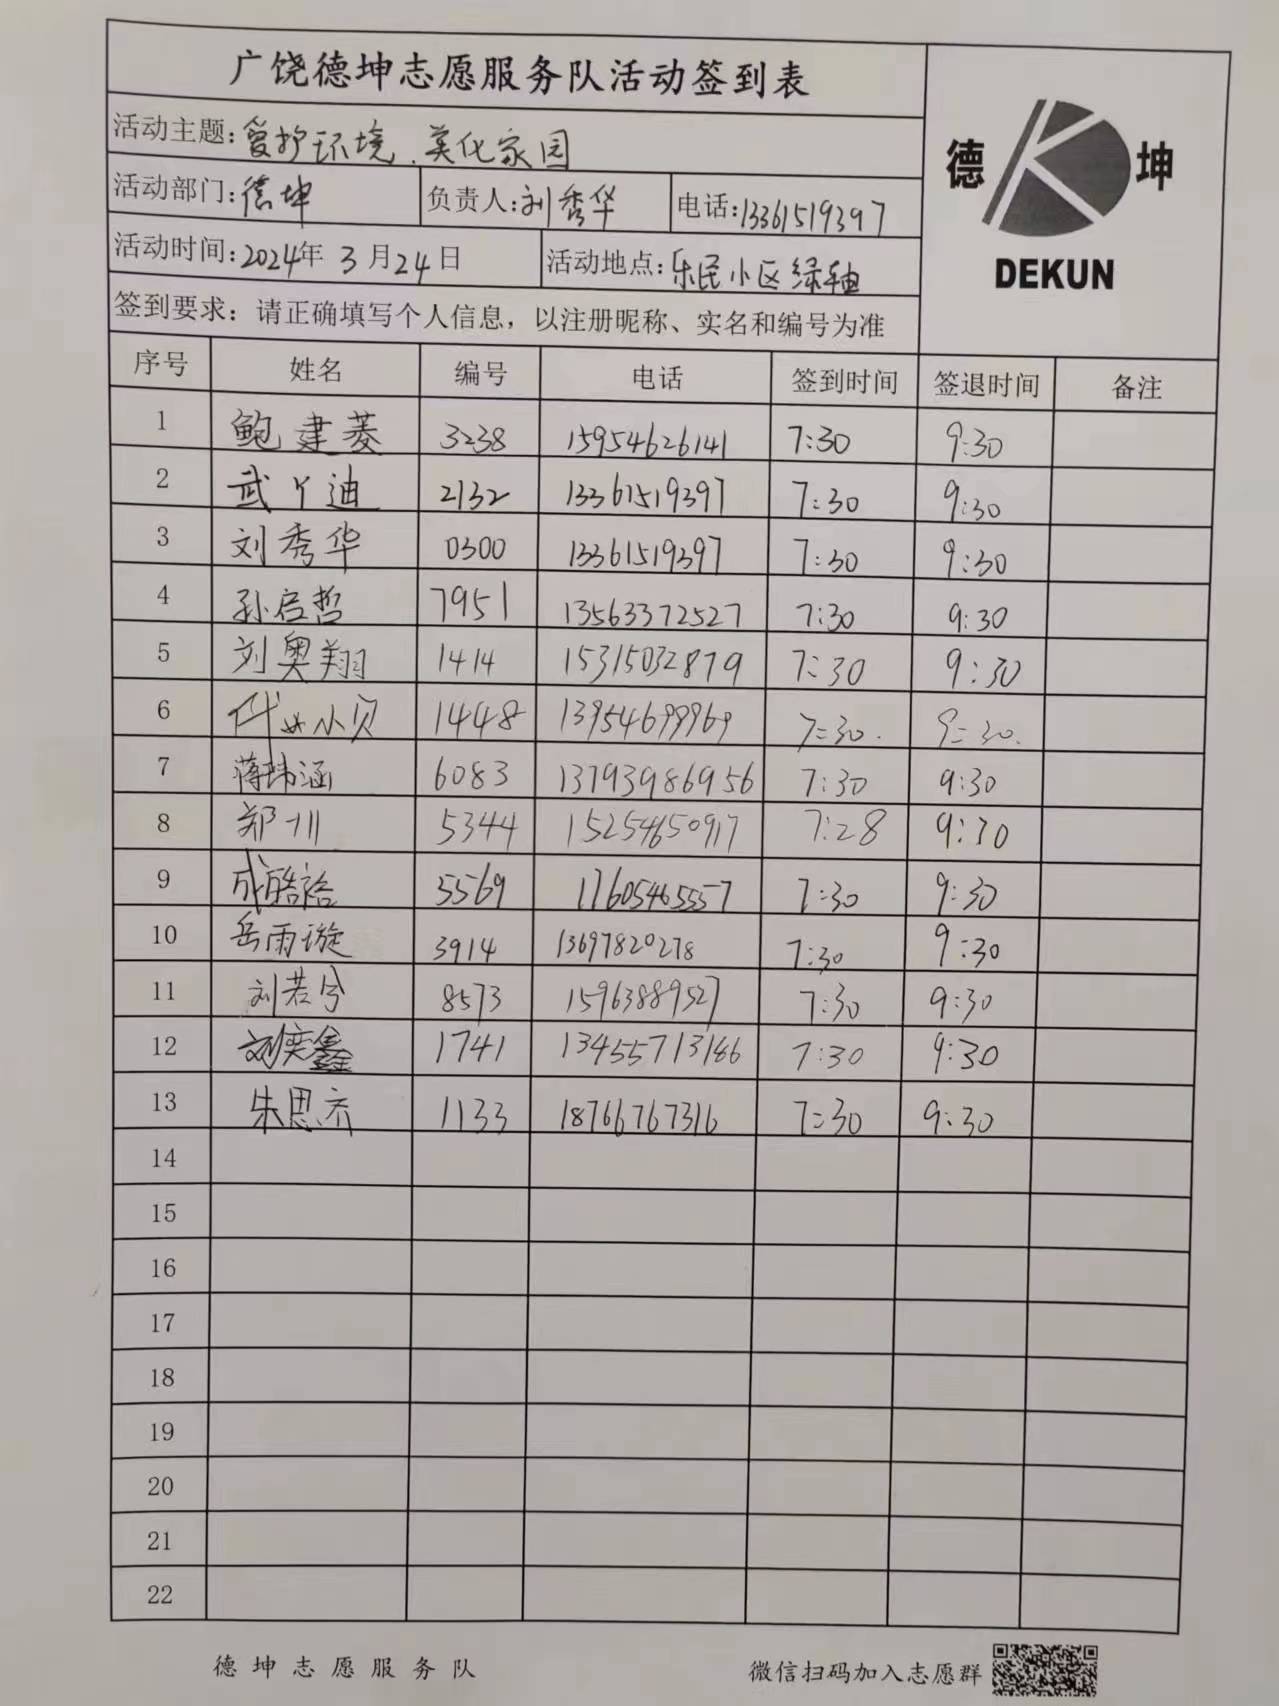 广饶德坤志愿服务队活动签到表
活动主题:爱护环境、美化家园
德 坤
DEKUN
活动部门:德坤 负责人:刘秀华 电话:13361519397
活动时间:2024年 3 月 24 日 活动地点:乐民小区绿轴
签到要求：请正确填写个人信息，以注册昵称、实名和编号为准
序号 姓名 编号 电话 签到时间 签退时间 备注
1 鲍建菱 3238 15954626141 7:30 9:30
2 武丫迪 2132 13361519397 7:30 9:30
3 刘秀华 0300 13361519397 7:30 9:30
4 孙启哲 7951 13563372527 7:30 9:30
5 刘奥翔 1414 15315032879 7:30 9:30
6 小贝 1448 13954699969 7:30. 9:30.
7 蒋玮涵 6083 13793986956 7:30 9:30
8 郑川 5344 15254650917 7:28 9:30
9 成皓裕 5569 17605465557 7:30 9:30
10 岳雨璇 3914 13697820278 7:30 9:30
11 刘若兮 8573 15963889527 7:30 9:30
12 刘奕鑫 1741 13455713186 7:30 9:30
13 朱思齐 1133 18766767316 7:30 9:30
14
15
16
17
18
19
20
21
22
德坤志愿服务队 微信扫码加入志愿群